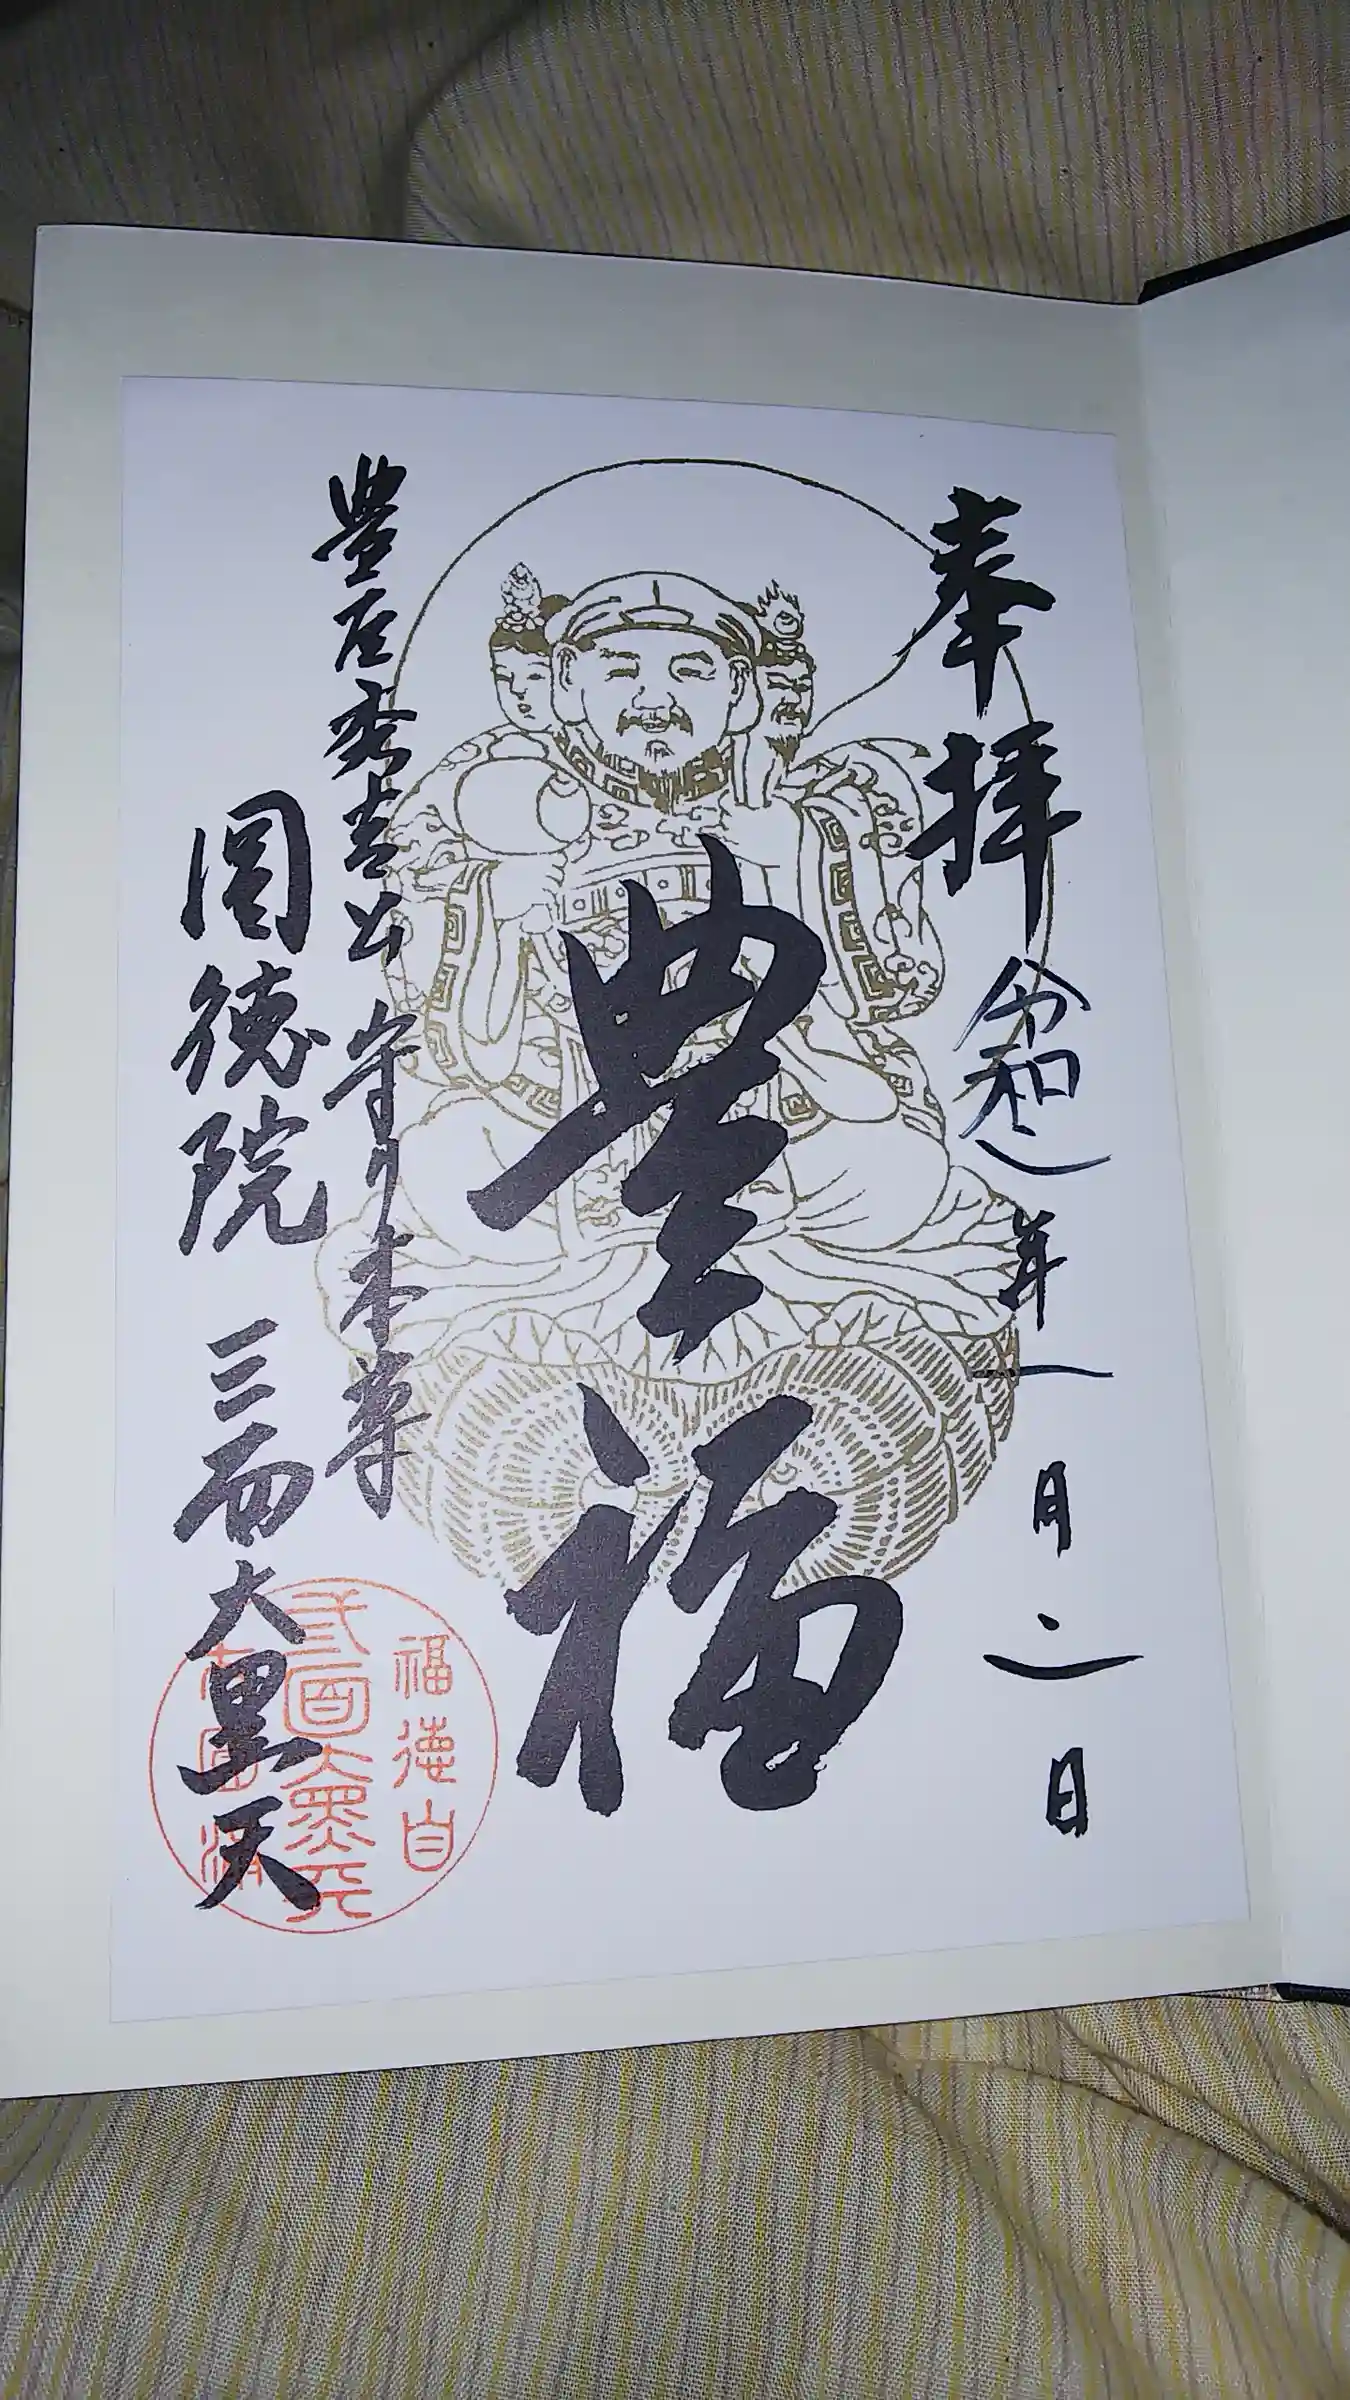 奉拝
令和二年一月二日
豊福
豊臣秀吉公 守り本尊
圓徳院 三面大黒天
福徳自
三面大黒天